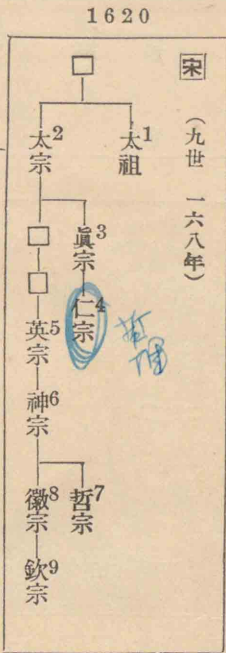 1620
宋
(九世 一六八年)
太祖1
太宗2
眞宗3
仁宗4
英宗5
神宗6
哲宗7
徽宗8
欽宗9